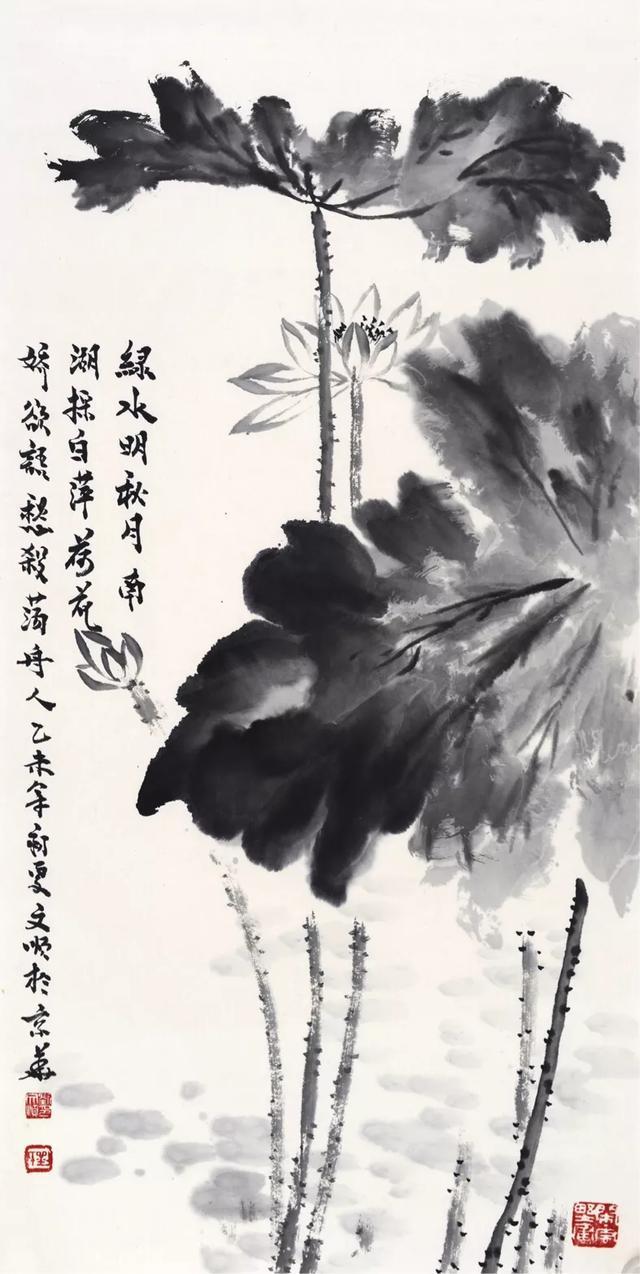 緑水明秋月南
湖採白萍荷花
嬌欲語愁殺蕩舟人乙未年初夏文順於京華